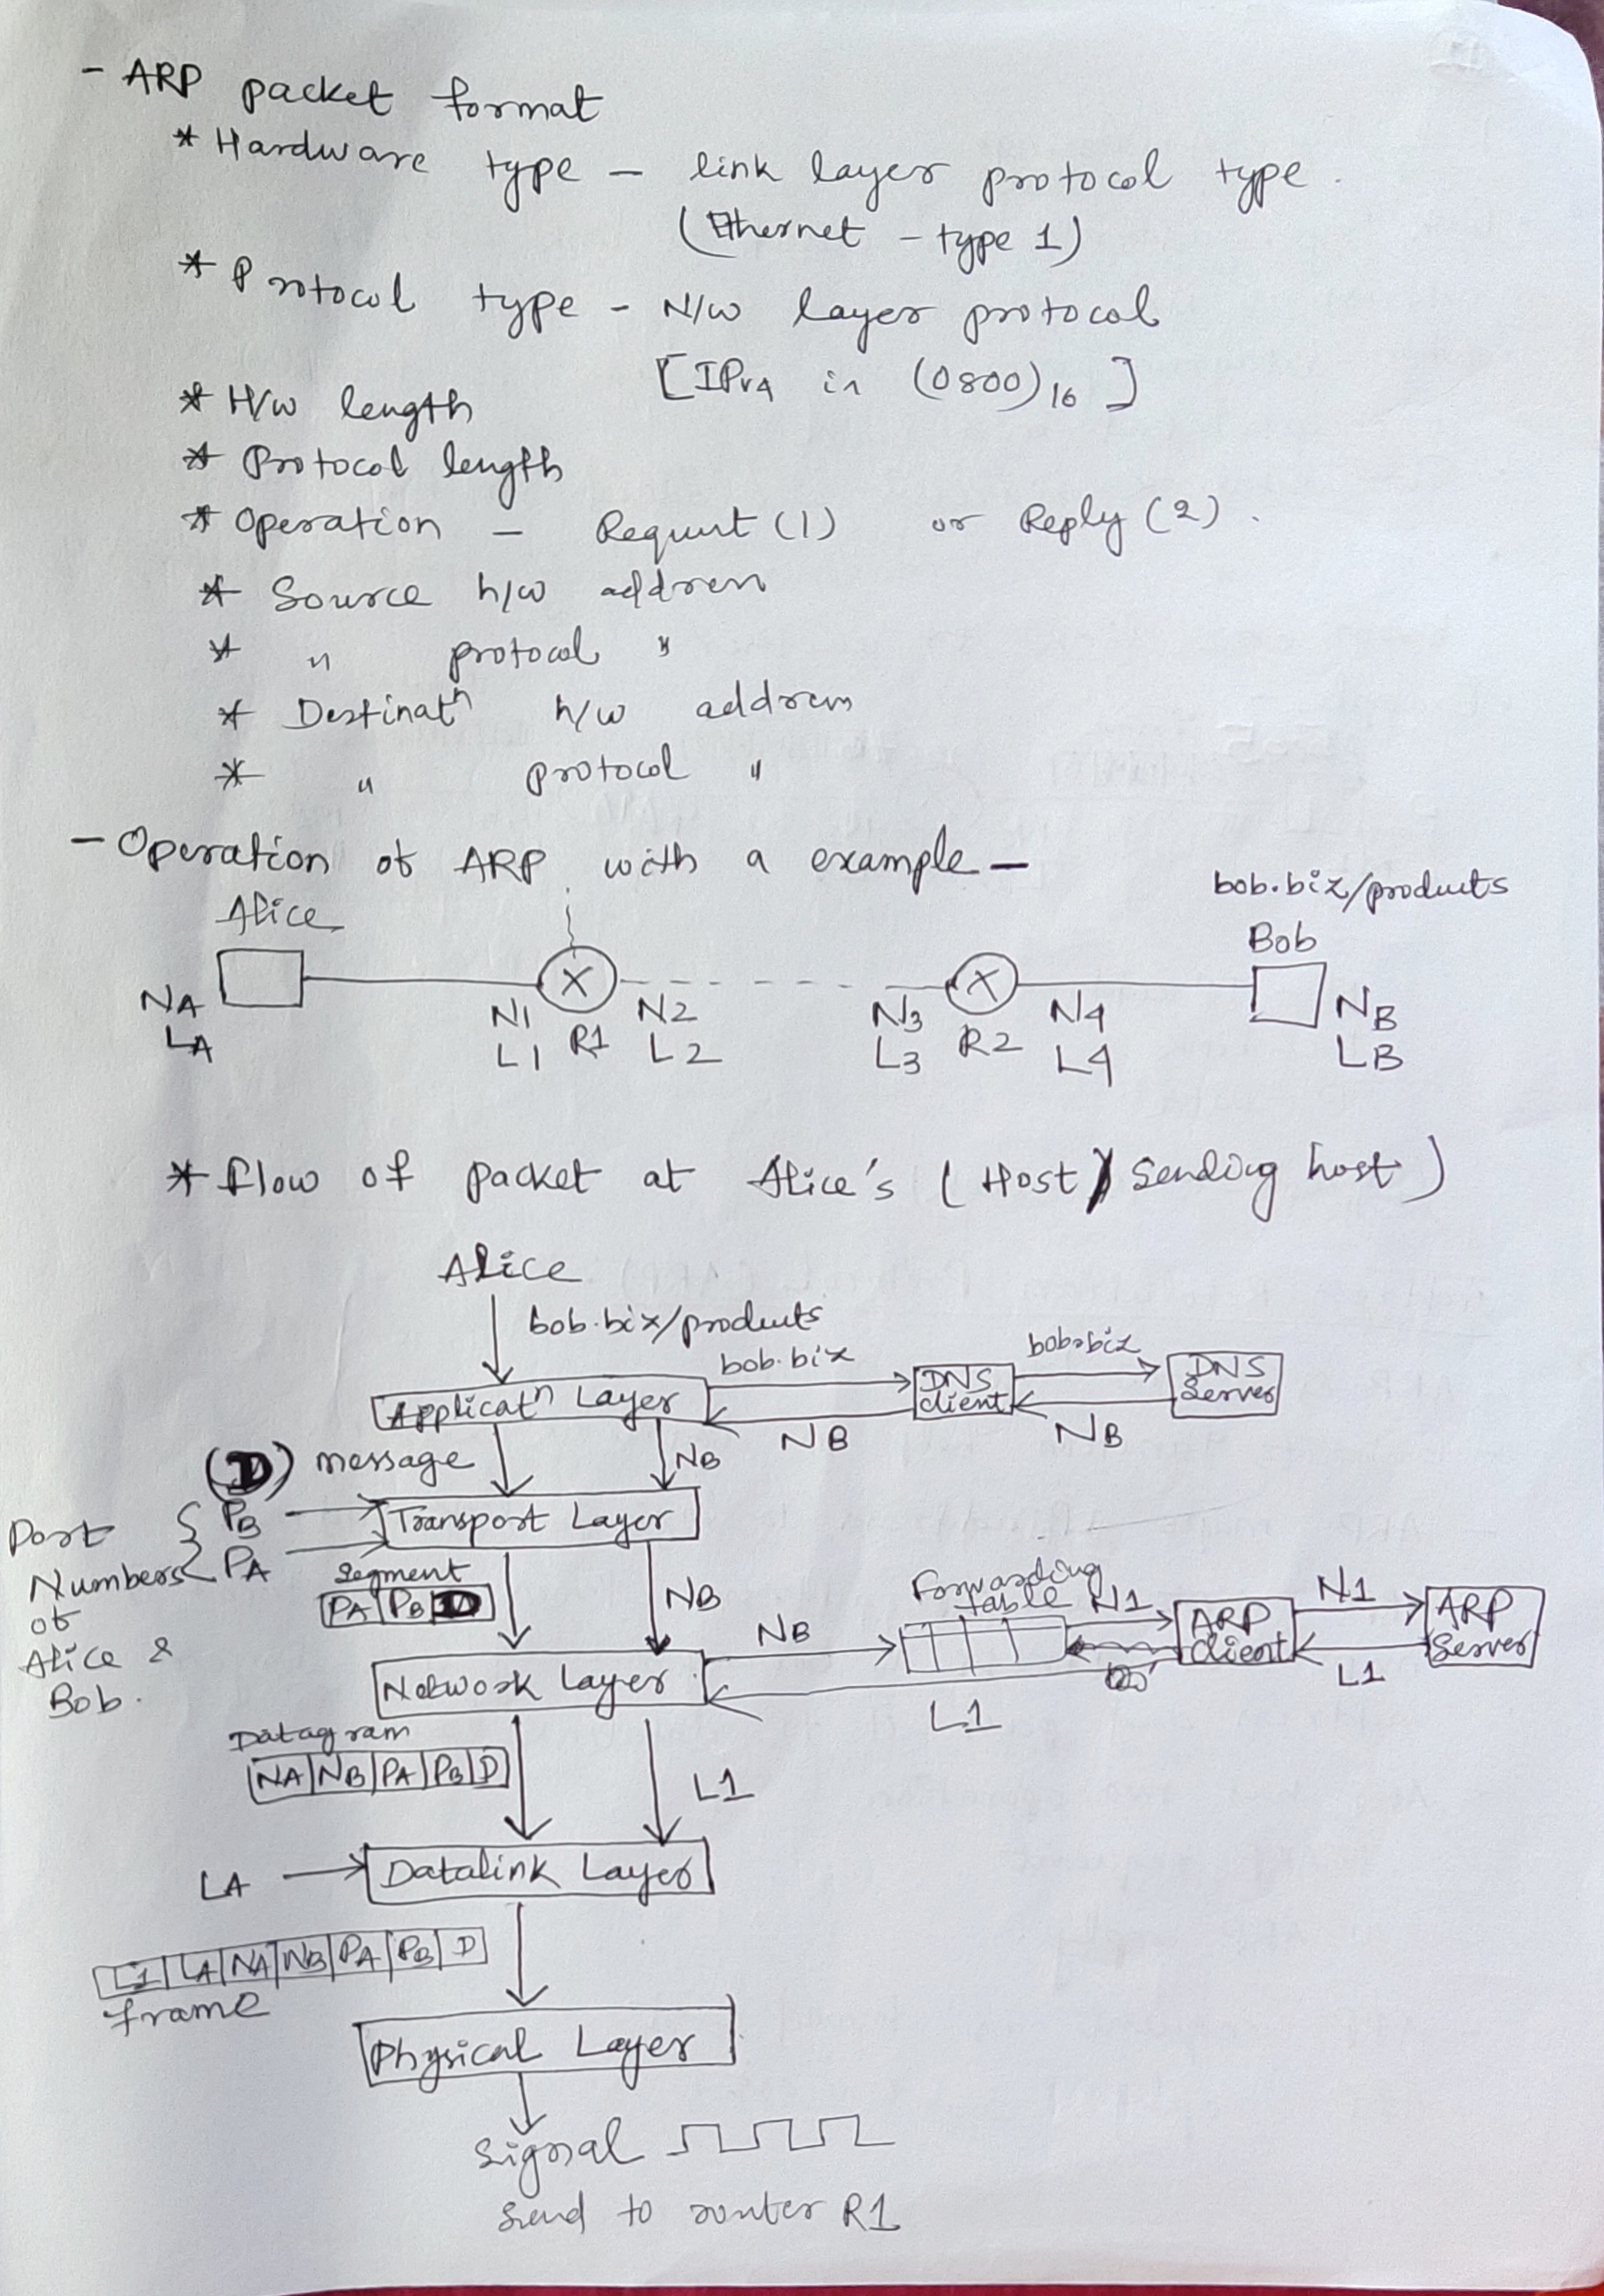 - ARP packet format
* Hardware type - link layer protocol type.
(Ethernet - type 1)
* Protocol type - N/w layer protocol
[IPv4 in (0800)16]
* H/w length
* Protocol length
* Operation - Request (1) or Reply (2).
* Source h/w address
* " protocol "
* Destinatn h/w address
* " protocol "
- Operation of ARP with a example -
bob.biz/products
Alice
Bob
NA
LA
N1
L1
R1
N2
L2
N3
L3
R2
N4
L4
NB
LB
* flow of packet at Alice's (Host) Sending host)
Alice
bob.biz/products
bob.biz
bob.biz
Applicatn Layer
DNS
Client
DNS
Server
NB
NB
(D) message
NB
Port
Numbers
of
Alice &
Bob.
PB
PA
Transport Layer
Segment
PA PB D
NB
NB
Forwarding
table
N1
ARP
Client
N1
ARP
Server
L1
L1
Network Layer
Datagram
NA NB PA PB D
L1
LA
Datalink Layer
L1 LA NA NB PA PB D
frame
Physical Layer
Signal
Send to router R1